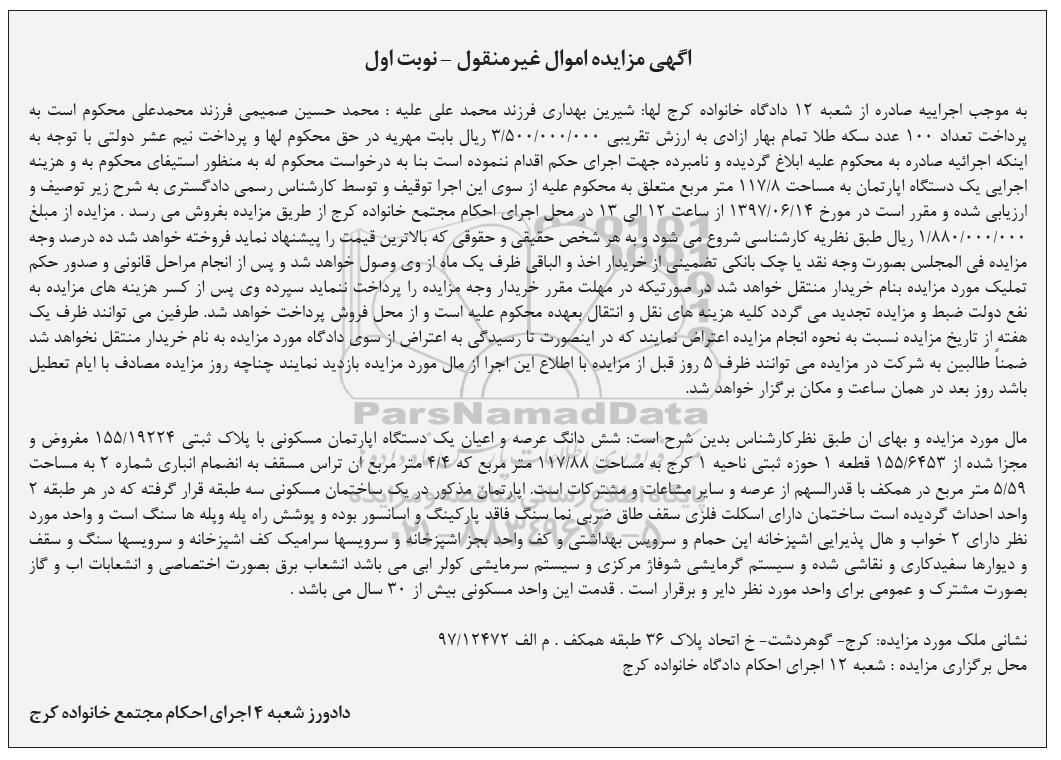 اگهی مزایده اموال غیرمنقول - نوبت اول
به موجب اجراییه صادره از شعبه ۱۲ دادگاه خانواده کرج لها: شیرین بهداری فرزند محمد علی علیه : محمد حسین صمیمی فرزند محمدعلی محکوم است به
پرداخت تعداد ۱۰۰ عدد سکه طلا تمام بهار ازادی به ارزش تقریبی ۳/۵۰۰/۰۰۰/۰۰۰ ریال بابت مهریه در حق محکوم لها و پرداخت نیم عشر دولتی با توجه به
اینکه اجرائیه صادره به محکوم علیه ابلاغ گردیده و نامبرده جهت اجرای حکم اقدام ننموده است بنا به درخواست محکوم له به منظور استیفای محکوم به و هزینه
اجرایی یک دستگاه اپارتمان به مساحت ۱۱۷/۸ متر مربع متعلق به محکوم علیه از سوی این اجرا توقیف و توسط کارشناس رسمی دادگستری به شرح زیر توصیف و
ارزیابی شده و مقرر است در مورخ ۱۳۹۷/۰۶/۱۴ از ساعت ۱۲ الی ۱۳ در محل اجرای احکام مجتمع خانواده کرج از طریق مزایده بفروش می رسد . مزایده از مبلغ
۱/۸۸۰/۰۰۰/۰۰۰ ریال طبق نظریه کارشناسی شروع می شود و به هر شخص حقیقی و حقوقی که بالاترین قیمت را پیشنهاد نماید فروخته خواهد شد ده درصد وجه
مزایده فی المجلس بصورت وجه نقد یا چک بانکی تضمینی از خریدار اخذ و الباقی ظرف یک ماه از وی وصول خواهد شد و پس از انجام مراحل قانونی و صدور حکم
تملیک مورد مزایده بنام خریدار منتقل خواهد شد در صورتیکه در مهلت مقرر خریدار وجه مزایده را پرداخت ننماید سپرده وی پس از کسر هزینه های مزایده به
نفع دولت ضبط و مزایده تجدید می گردد کلیه هزینه های نقل و انتقال بعهده محکوم علیه است و از محل فروش پرداخت خواهد شد. طرفین می توانند ظرف یک
هفته از تاریخ مزایده نسبت به نحوه انجام مزایده اعتراض نمایند که در اینصورت تا رسیدگی به اعتراض از سوی دادگاه مورد مزایده به نام خریدار منتقل نخواهد شد
ضمناً طالبین به شرکت در مزایده می توانند ظرف ۵ روز قبل از مزایده با اطلاع این اجرا از مال مورد مزایده بازدید نمایند چناچه روز مزایده مصادف با ایام تعطیل
باشد روز بعد در همان ساعت و مکان برگزار خواهد شد.
ParsNamadData
مال مورد مزایده و بهای ان طبق نظرکارشناس بدین شرح است: شش دانگ عرصه و اعیان یک دستگاه اپارتمان مسکونی با پلاک ثبتی ۱۵۵/۱۹۲۲۴ مفروض و
مجزا شده از ۱۵۵/۶۴۵۳ قطعه ۱ حوزه ثبتی ناحیه ۱ کرج به مساحت ۱۱۷/۸۸ متر مربع که ۴/۴ متر مربع ان تراس مسقف به انضمام انباری شماره ۲ به مساحت
۵/۵۹ متر مربع در همکف با قدرالسهم از عرصه و سایر مشاعات و مشترکات است. اپارتمان مذکور در یک ساختمان مسکونی سه طبقه قرار گرفته که در هر طبقه ۲
واحد احداث گردیده است ساختمان دارای اسکلت فلزی سقف طاق ضربی نما سنگ فاقد پارکینگ و اسانسور بوده و پوشش راه پله وپله ها سنگ است و واحد مورد
نظر دارای ۲ خواب و هال پذیرایی اشپزخانه اپن حمام و سرویس بهداشتی و کف واحد بجز اشپزخانه و سرویسها سرامیک کف اشپزخانه و سرویسها سنگ و سقف
و دیوارها سفیدکاری و نقاشی شده و سیستم گرمایشی شوفاژ مرکزی و سیستم سرمایشی کولر ابی می باشد انشعاب برق بصورت اختصاصی و انشعابات اب و گاز
بصورت مشترک و عمومی برای واحد مورد نظر دایر و برقرار است . قدمت این واحد مسکونی بیش از ۳۰ سال می باشد .
نشانی ملک مورد مزایده: کرج- گوهردشت- خ اتحاد پلاک ۳۶ طبقه همکف . م الف ۹۷/۱۲۴۷۲
محل برگزاری مزایده : شعبه ۱۲ اجرای احکام دادگاه خانواده کرج
دادورز شعبه ۴ اجرای احکام مجتمع خانواده کرج